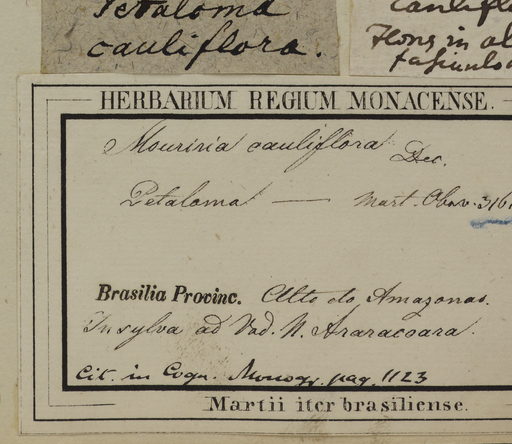 Petaloma
cauliflora.
Flores in
HERBARIUM REGIUM MONACENSE.
Mouriria cauliflora Dec.
Petaloma — Mart. Obs. 3161
Brasilia Provinc. Alto do Amazonas.
In sylva ad Rad. M. Araracoara.
Cit. in Cogn. Monogr. pag. 1123
Martii iter brasiliense.